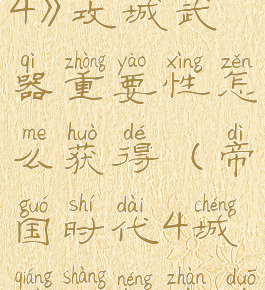 4》攻城武
qì zhòng yào xìng zěn
器重要性怎
me huò dé dì
么获得（帝
guó shí dài chéng
国时代4城
qiáng shàng néng zhàn duō